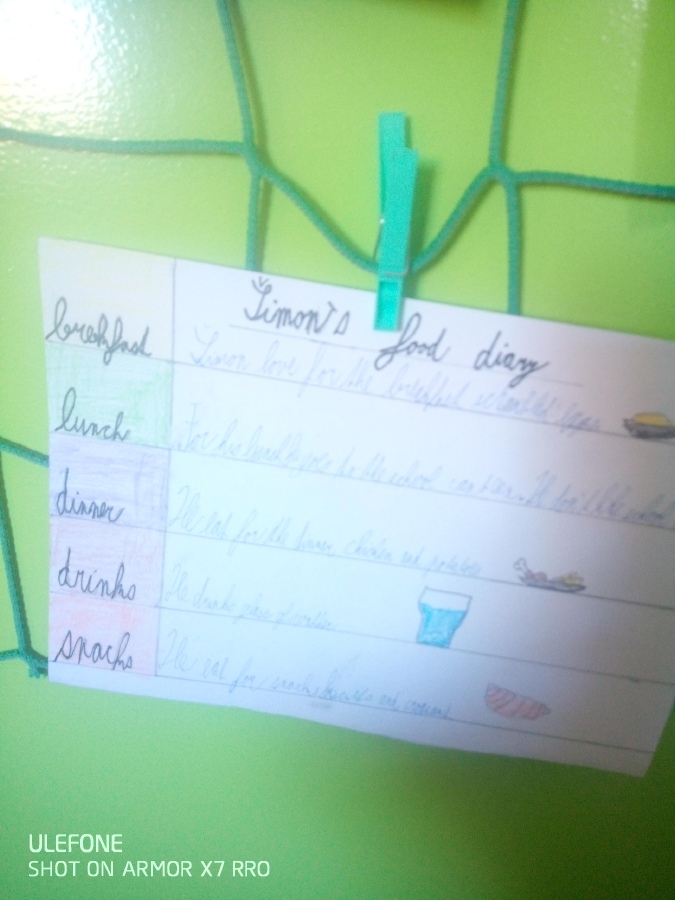 Šimon's food diary
breakfast
Šimon love for the breakfast scrambled eggs
lunch
For his lunch goes to the school canteen. He don't like school
dinner
He eat for the dinner chicken and potatoes
drinks
He drinks glass of water.
snacks
He eat for snack biscuits and croissant
ULEFONE
SHOT ON ARMOR X7 RRO